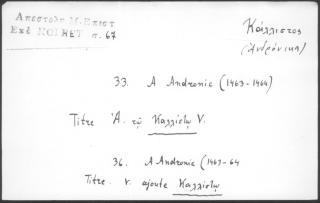 Αποστολη Μ. Επιστ
Εκδ NOIRET π. 67
Κάλλιστος
(Ἀνδρόνικος)
33. A Andronic (1463-1464)
Titre Ἀ. τῷ Καλλίστῳ V.
36. A Andronic (1463-64
Titre. V. ajoute Καλλίστῳ